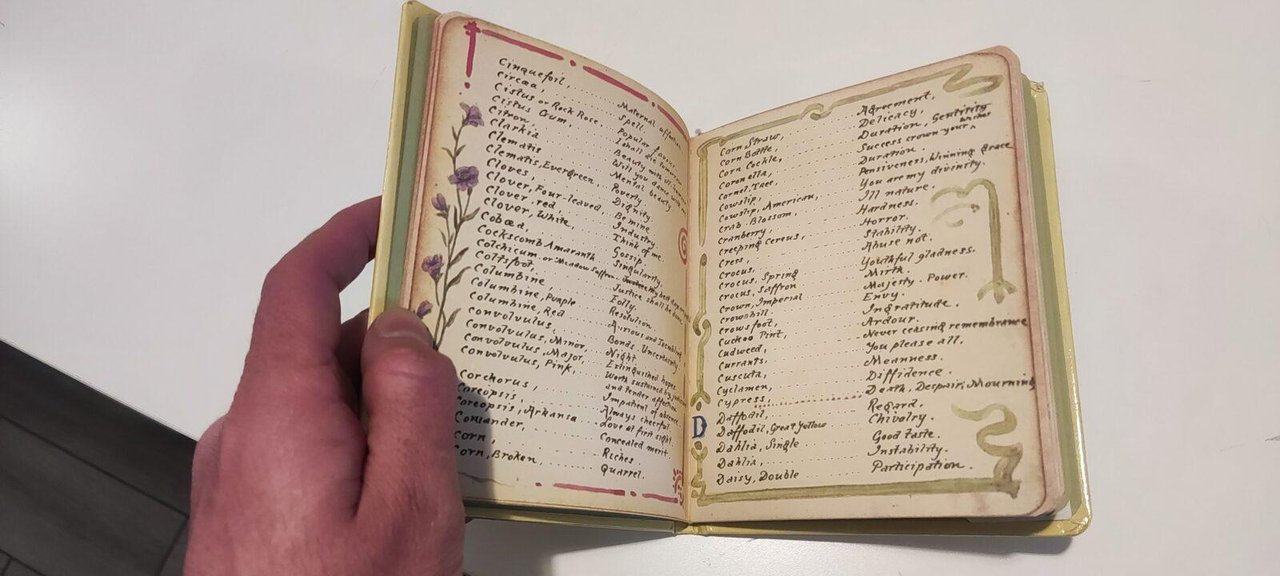 Cinquefoil, Maternal affection.
Circæa, Spell.
Cistus or Rock Rose, Popular favour
Cistus Gum, I shall die
Citron, Beauty with
Clarkia Will you dance with
Clematis Mental beauty.
Clematis, Evergreen, Poverty.
Cloves, Dignity.
Clover, Four-leaved Be mine
Clover, red, Industry.
Clover, White, Think of me.
Cobœa, Gossip.
Cockscomb Amaranth Singularity.
Colchicum or Meadow Saffron best days are
Coltsfoot, Justice shall be done
Columbine, Folly.
Columbine, Purple Resolution
Columbine, Red Anxious and trembling
Convolvulus Bonds, Uncertainty
Convolvulus, Minor, Night
Convolvulus, Major, Extinguished hopes.
Convolvulus, Pink, Worth sustained by
and tender affection
Corchorus, Impatient of absence.
Coreopsis, Always cheerful
Coreopsis, Arkansa Love at first sight.
Coriander, Concealed merit.
Corn, Riches.
Corn, Broken, Quarrel.
Corn Straw, Agreement,
Corn Bottle, Delicacy,
Corn Cockle, Duration, Gentility
Coronella, Success crown your wishes
Cornel Tree, Duration
Cowslip, Pensiveness, Winning grace
Cowslip, American, You are my divinity.
Crab Blossom, Ill nature.
Cranberry, Hardness.
Creeping cereus, Horror.
Cress, Stability.
Crocus, Abuse not.
Crocus, Spring Youthful gladness.
Crocus, Saffron Mirth.
Crown, Imperial Majesty. Power.
Crowsbill, Envy.
Crowsfoot, Ingratitude.
Cuckoo Pint, Ardour.
Cudweed, Never ceasing remembrance
Currants, You please all.
Cuscuta, Meanness.
Cyclamen, Diffidence.
Cypress, Death, Despair, Mourning
D
Daffodil, Regard.
Daffodil, Great Yellow Chivalry.
Dahlia, Single Good taste.
Dahlia, Instability.
Daisy, Double Participation.